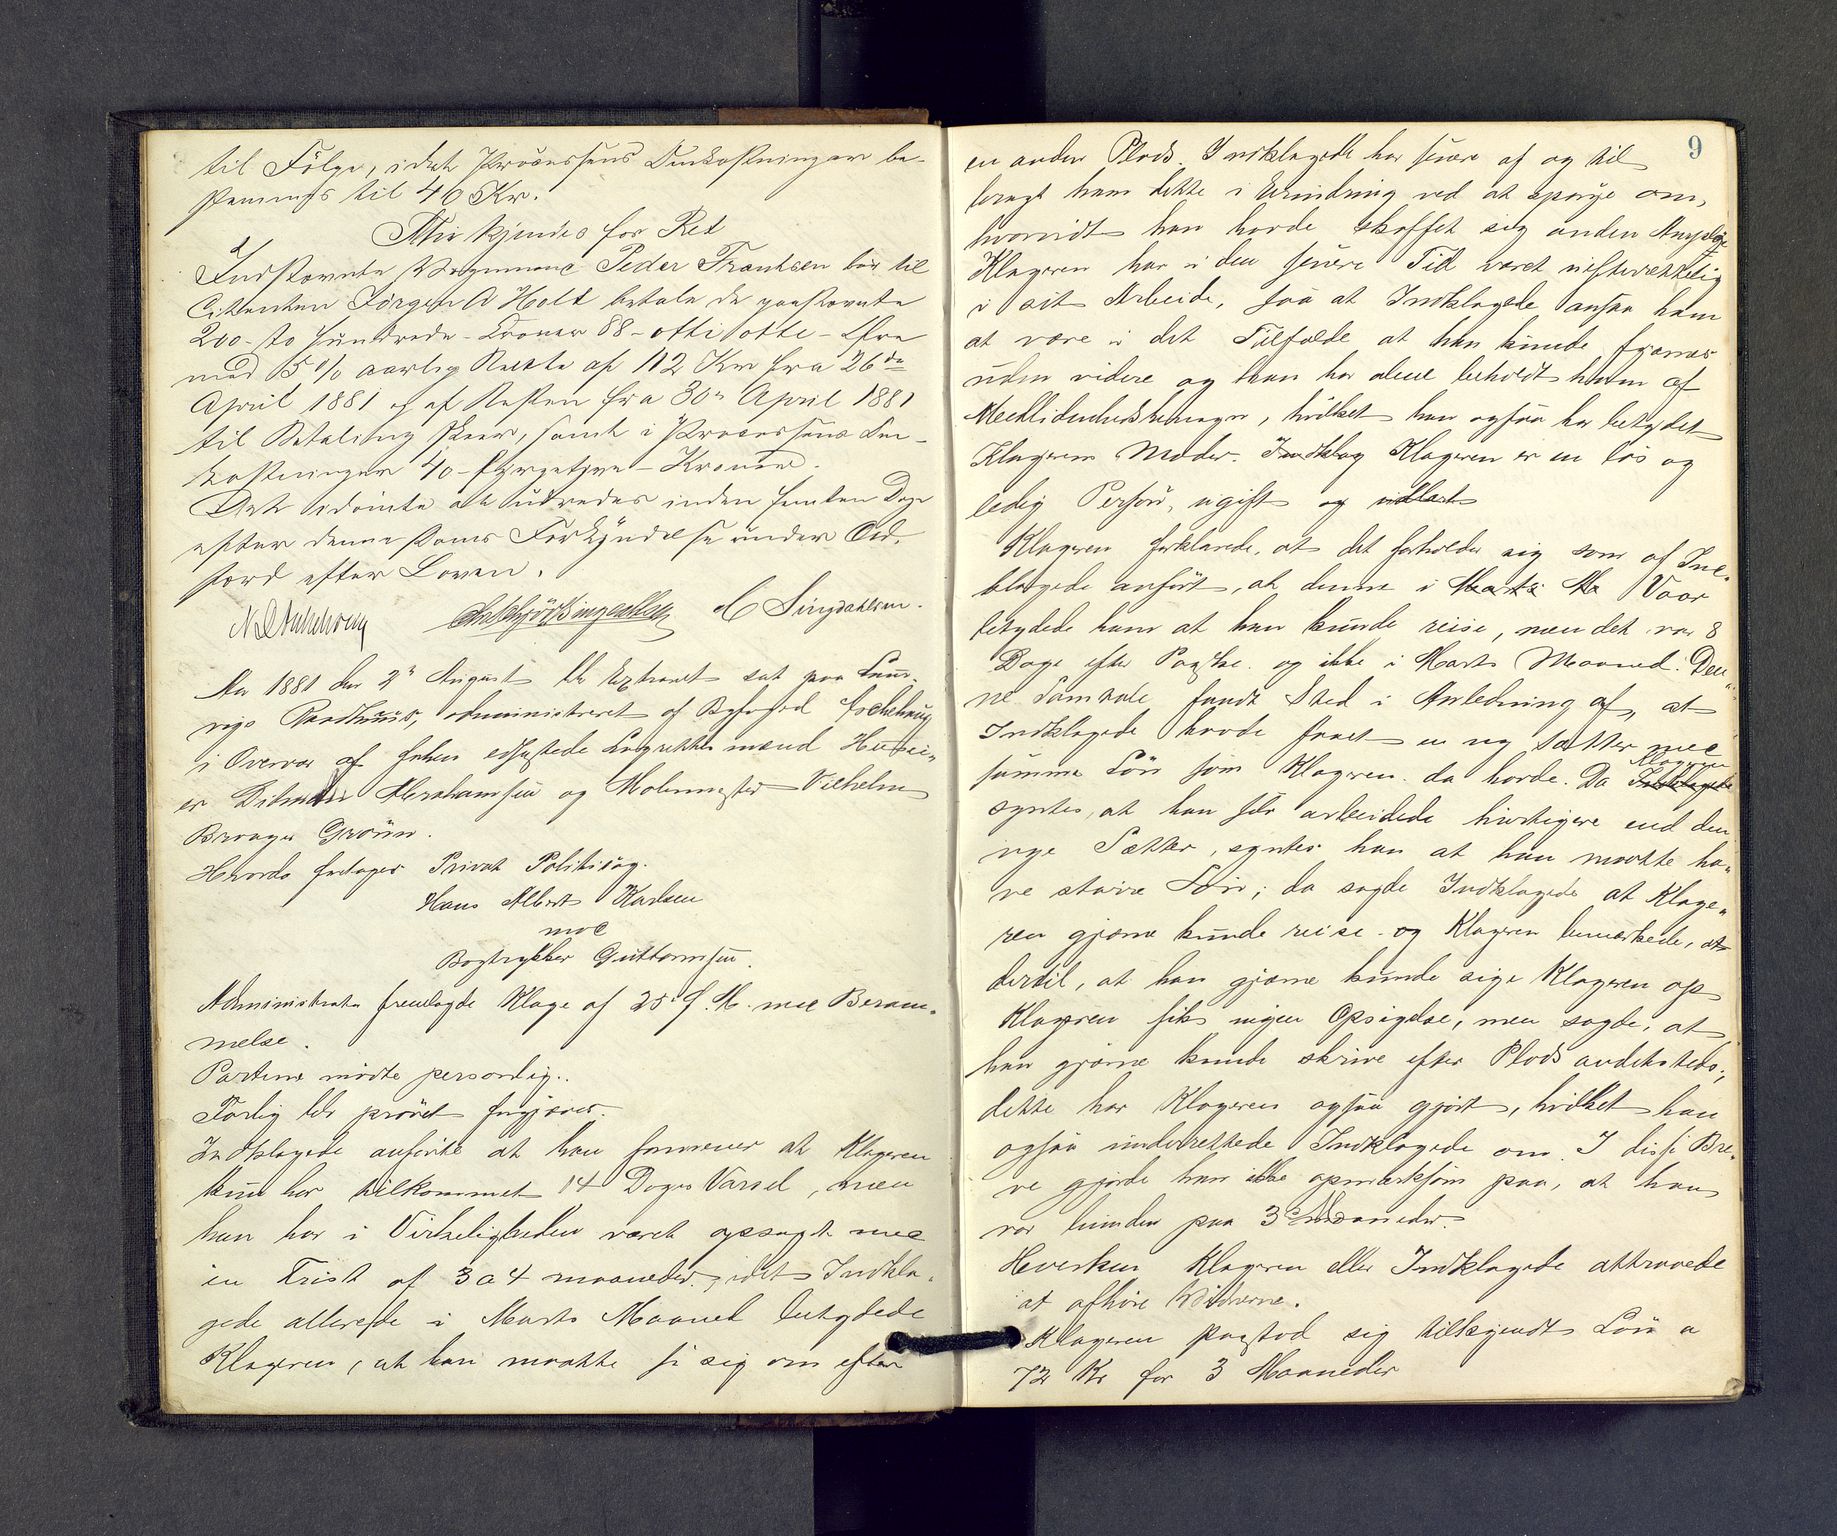 til Følge, idet Processens Omkostninger be-
stemmes til 40 Kr.
Thi kjendes for Ret
Indstevnte Vognmand Peder Frantsen bør til
Citanten Jörgen A Holt betale de paastevnte
200 - to hundrede - Kroner 88 - otti otte - Øre
med 5 % aarlig Rente af 112 Kr fra 26de
April 1881 og af Resten fra 30te April 1881
til Betaling skeer, samt i Processens Om-
kostninger 40 - fyrretyve - Kroner.
Det idømte at udredes inden femten Dage
efter denne Doms Forkyndelse under Ad-
færd efter Loven.
C Singdahlsen.
Aar 1881 den 2den August blev Extraret sat paa Laur-
vigs Raadhuus, administreret af Byfoged Aschehoug
i Overvær af faste edfæstede Lagrettesmænd
Abrahamsen og Vilhelm
Brunges Grönn.
Hvorda foretoges Privat Politisag.
Hans Albert Karlsen
mod
Bogtrykker Guttormsen.
Administrator fremlagde Klage af 25 f. M. med Beram-
melse.
Parterne mødte personlig.
Forlig blev prøvet forgjæves.
Indklagede anførte at han formener at Klageren
kun har tilkommet 14 Dages Varsel, men
han har i Virkeligheden været opsagt med
en Frist af 3 a 4 maaneder, idet Indkla-
gede allerede i Marts Maaned betydede
Klageren, at han maatte se sig om efter
9
en anden Plads. Indklagede har senere af og til
bragt ham dette i Erindring ved at spørge om,
hvorvidt han havde skaffet sig anden Ansættelse
Klageren har i den senere Tid været uefterrettelig
i sit Arbeide, saa at Indklagede ansaa ham
at være i det Tilfælde at han kunde fjernes
uden videre og han har alene beholdt ham af
Medlidenhedshensyn, hvilket han ogsaa har betydet
Klagerens Moder. Indklag Klageren er en løs og
ledig Person, ugift og
Klageren forklarede, at det forholder sig som af Ind-
klagede anført, at denne i Marts Ma Vaar
betydede ham at han kunde reise, men det var 8
Dage efter Paaske og ikke i Marts Maaned. Den-
ne Samtale fandt Sted i Anledning af, at
Indklagede havde faaet en ny Sætter med
samme Løn som Klageren da havde. Da Indklagede Klageren
syntes, at han selv arbeidede hurtigere end den
nye Sætter, syntes han at han maatte ha-
ve større Løn; da sagde Indklagede at Klage-
ren gjerne kunde reise og Klageren bemærkede, at
dertil, at han gjerne kunde sige Klageren op
Klageren fik ingen Opsigelse, men sagde, at
han gjerne kunde skrive efter Plads andetsteds;
dette har Klageren ogsaa gjort, hvilket han
ogsaa underrettede Indklagede om. I disse Bre-
ve gjorde han ikke opmærksom paa, at han
var bunden paa 3 Maaneder.
Hverken Klageren eller Indklagede attraaede
at afhøre Vidnerne.
Klageren paastod sig tilkjendt Løn a
72 Kr for 3 Maaneder